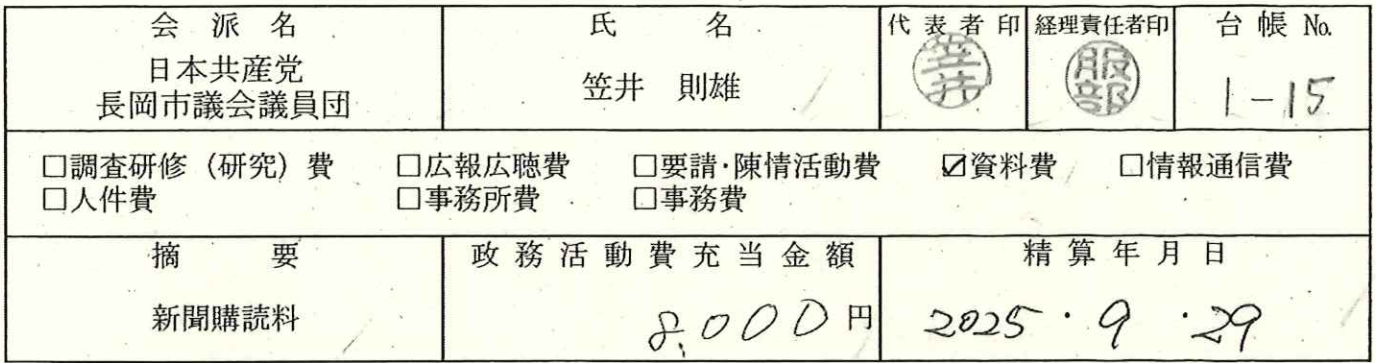 会派名 氏名 代表者印 経理責任者印 台帳No.
日本共産党
長岡市議会議員団
笠井 則雄
笠井
服部
1-15
□調査研修(研究)費 □広報広聴費 □要請・陳情活動費 ☑資料費 □情報通信費
□人件費 □事務所費 □事務費
摘要 政務活動費充当金額 精算年月日
新聞購読料 8,000円 2025・9・29